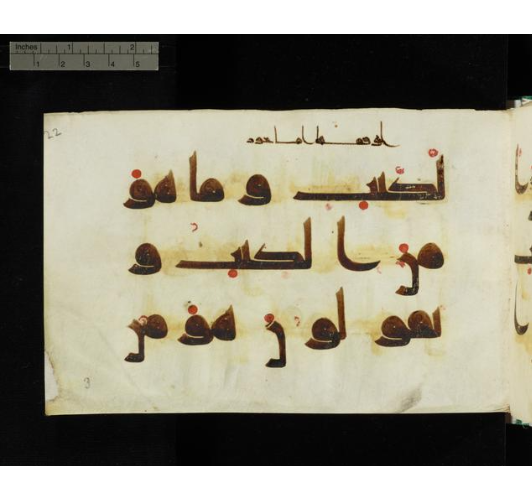 Inches 1 2
1 2 3 4 5
22
لكتب وما هو
من الكتب و
يقولون هو من
3